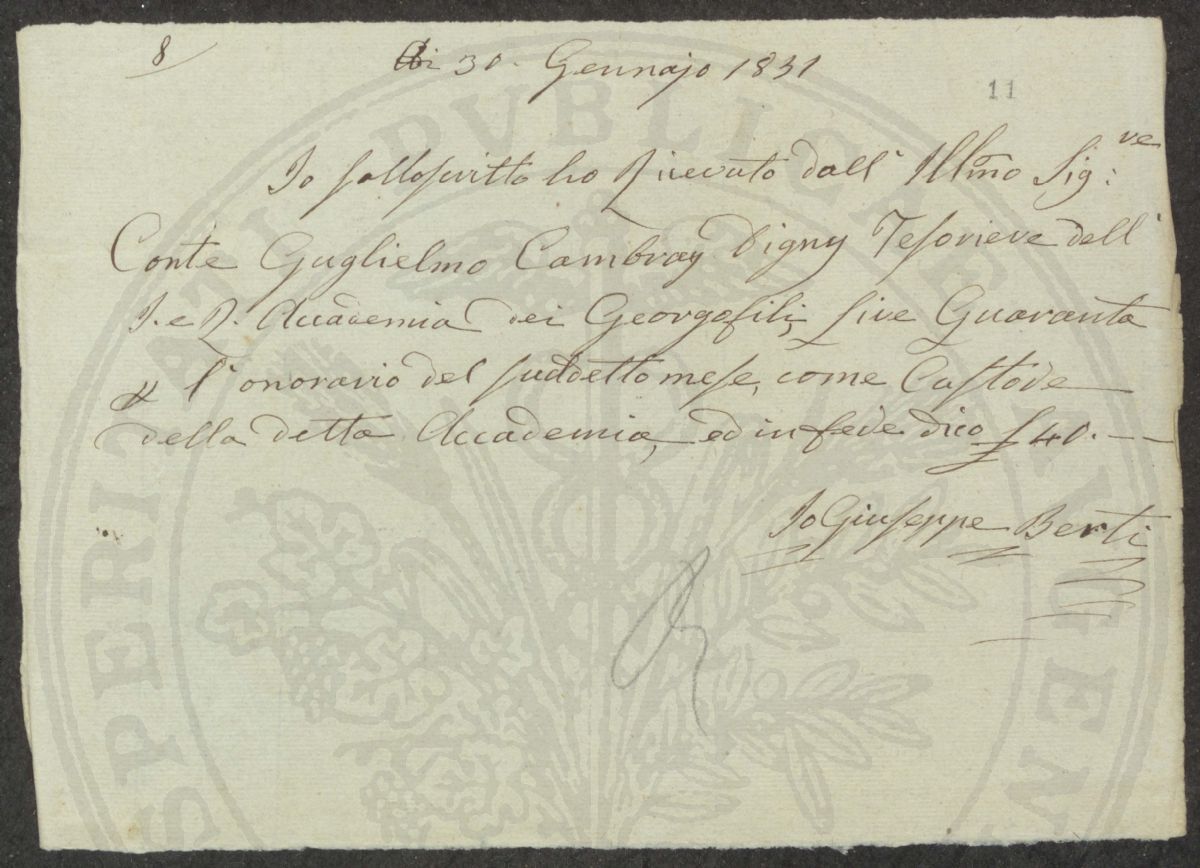 8
Adì 30. Gennajo 1831
11
Io sottoscritto ho Ricevuto dall' Illmo Sig:re
Conte Guglielmo Cambray Digny Tesoriere dell'
I. e R. Accademia dei Georgofili, Lire Quaranta
p l'onorario del suddetto mese, come Custode
della detta Accademia, ed in fede dico £ 40. —
Io Giuseppe Berti
PROSPERITATI PUBLICAE AUGENDAE